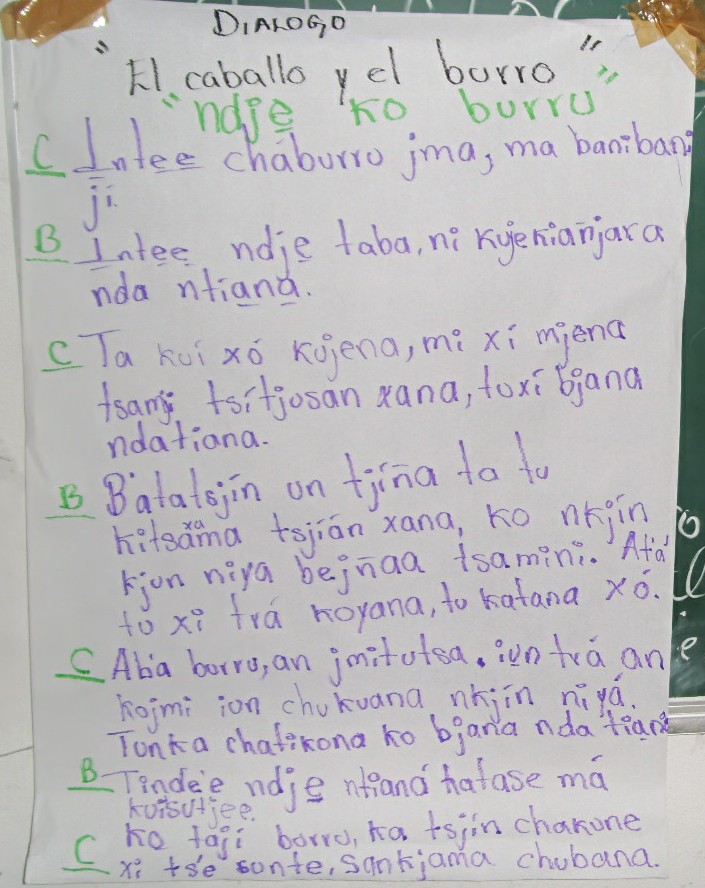 DIALOGO
"El caballo y el burro"
"ndje ko burru"
C Intee cháburro jma, ma banibani
ji.
B Intee ndje taba, ni kyekianjara
nda ntiana.
C Ta kui xó kojena, mi xi mjena
tsami tsítjosan xana, toxi bjana
ndatiana.
B Batatsjín un tjína ta tu
kitsama xa tsjián xana, ko nkjín
kjon niya bejnaa tsamini. Atá
to xi trá koyana, tu katana xó.
C Aba burro, an jmitutsa. ion trá an
kojmi ion chukuana nkjín niyá.
Tonka chatikona ko bjana nda tiana
B Tindee ndje ntianá hatase má
kuisutjee.
C ko taji borro, ka tsjin chakone
xi tse sonte, sankjama chubana.